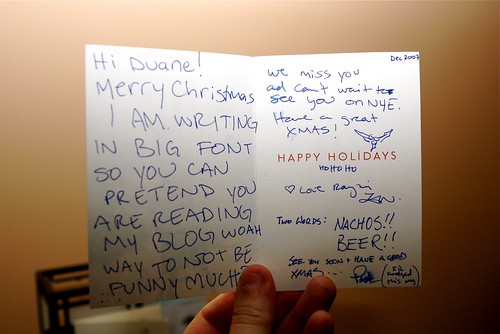 Hi Duane!
Merry Christmas
I AM WRITING
IN BIG FONT
SO YOU CAN
PRETEND YOU
ARE READING
MY BLOG WOAH
WAY TO NOT BE
FUNNY MUCH?
Dec 2007
we miss you
and can't wait to
see you on NYE.
Have a great
XMAS!
HAPPY HOLIDAYS
HO HO HO
♡ Love
TWO WORDS: NACHOS!!
BEER!!
SEE YOU SOON & HAVE A GOOD
XMAS...